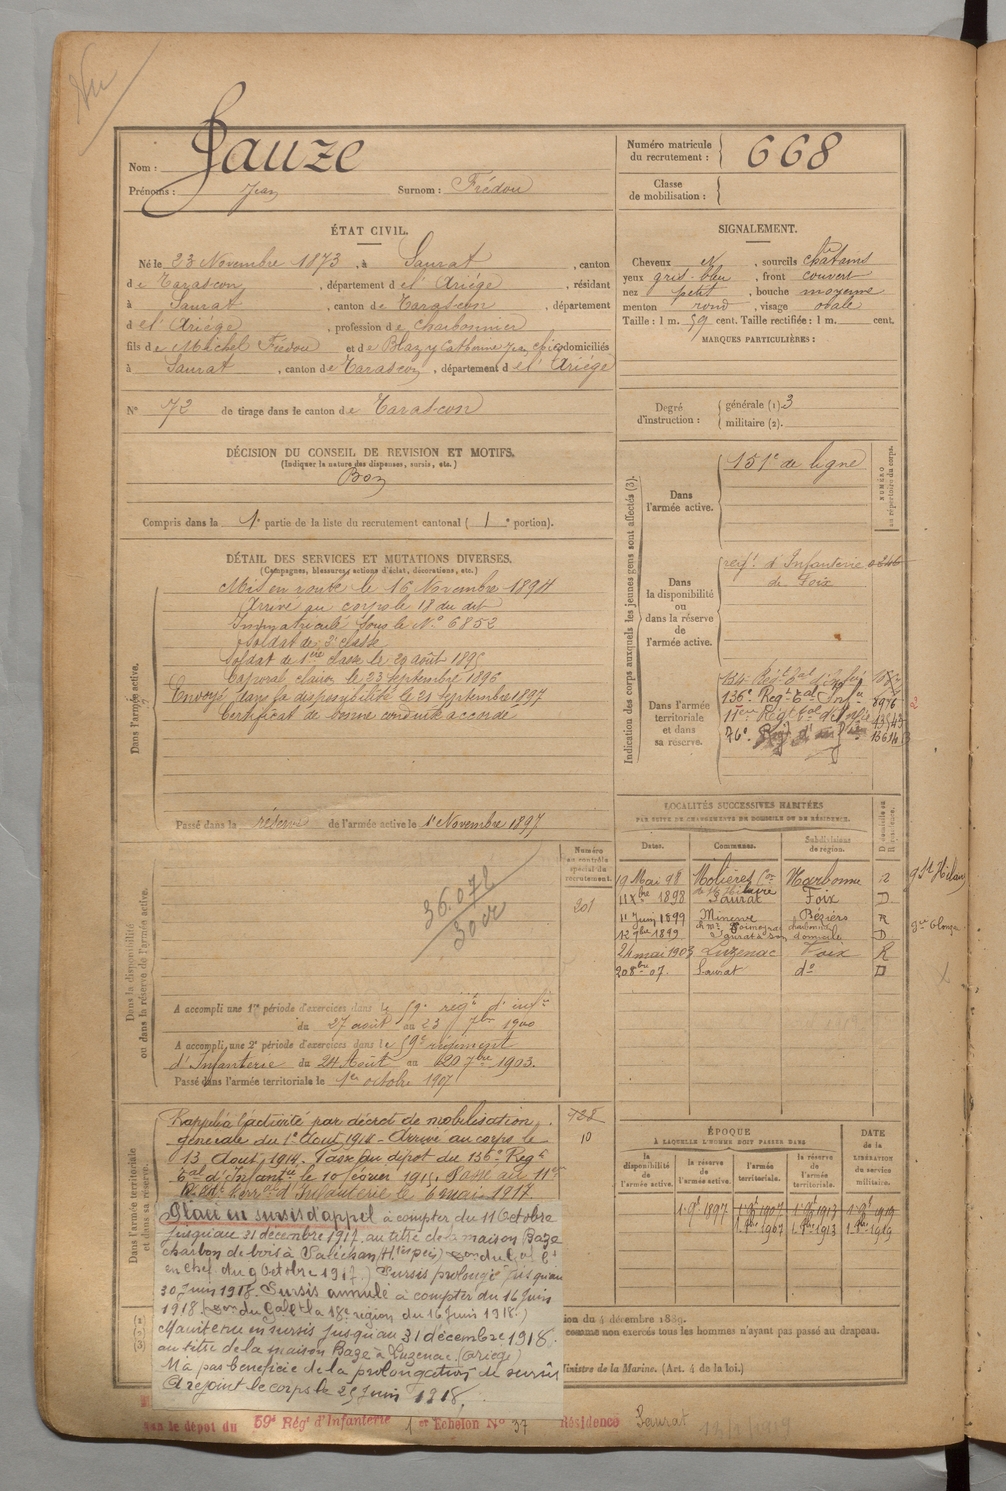 Vu
Nom : Gauze
Prénoms : Jean Surnom : Frédou
Numéro matricule du recrutement : 668
Classe de mobilisation :
ÉTAT CIVIL.
Né le 23 Novembre 1873, à Saurat, canton
de Tarascon, département de l'Ariége, résidant
à Saurat, canton de Tarascon, département
de l'Ariége, profession de Charbonnier
fils de Michel Frédou et de Blazy Catherine domiciliés
à Saurat, canton de Tarascon, département de l'Ariége
N° 72 de tirage dans le canton de Tarascon
SIGNALEMENT.
Cheveux , sourcils châtains
yeux gris-bleu, front couvert
nez petit, bouche moyenne
menton rond, visage ovale
Taille : 1 m. 59 cent. Taille rectifiée : 1 m. cent.
MARQUES PARTICULIÈRES :
Degré d'instruction : générale (1). 3
militaire (2).
DÉCISION DU CONSEIL DE REVISION ET MOTIFS.
(Indiquer la nature des dispenses, sursis, etc.)
Bon
Compris dans la 1e partie de la liste du recrutement cantonal (1e portion).
DÉTAIL DES SERVICES ET MUTATIONS DIVERSES.
(Campagnes, blessures, actions d'éclat, décorations, etc.)
Dans l'armée active.
Mis en route le 16 Novembre 1894
Arrivé au corps le 18 du dit
Immatriculé sous le N° 6852
Soldat de 2e classe
Soldat de 1ère classe le 29 août 1895
Caporal, clairon le 23 septembre 1896
Envoyé dans la disponibilité le 21 septembre 1897
Certificat de bonne conduite accordé
Passé dans la réserve de l'armée active le 1er Novembre 1897
Indication des corps auxquels les jeunes gens sont affectés (3).
NUMÉRO au répertoire du corps.
Dans l'armée active.
151e de ligne
Dans la disponibilité ou dans la réserve de l'armée active.
régt d'Infanterie
de Foix
Dans l'armée territoriale et dans sa réserve.
136e Régt Tal d'Infie 2976
11ème Régt Tal d'Infie 13543
76e Régt d' 13614
LOCALITÉS SUCCESSIVES HABITÉES
PAR SUITE DE CHANGEMENTS DE DOMICILE OU DE RÉSIDENCE.
Dates. Communes. Subdivisions de région. D domicile ou R résidence.
19 Mai 98 Molières Narbonne R
11 Xbre 1898 Saurat Foix D
11 Juin 1899 Minerve Béziers R
12 9bre 1899 Saurat à son domicile D
24 mai 1903 Luzenac Foix R
20 8bre 07. Saurat do D
Dans la disponibilité ou dans la réserve de l'armée active.
Numéro au contrôle spécial du recrutement.
201
36.072
30 cr
A accompli une 1re période d'exercices dans le 59e régt d'infie
du 27 août au 23 7bre 1900
A accompli une 2e période d'exercices dans le 59e régiment
d'Infanterie du 24 Août au 20 7bre 1903.
Passé dans l'armée territoriale le 1er octobre 1907
Dans l'armée territoriale et dans sa réserve.
Rappelé à l'activité par décret de mobilisation
générale du 1er Août 1914 - Arrivé au corps le
13 Août 1914. Passé au dépôt du 136e Régt
Tal d'Infantie le 10 février 1915. Passé au 11e
Régt terral d'Infanterie le 6 mai 1917.
10
Placé en sursis d'appel à compter du 11 Octobre
jusqu'au 31 décembre 1917 au titre de la maison Baze
charbon de bois à Saléchan (Htes Pées)
en chef du 9 Octobre 1917.) Sursis prolongé jusqu'au
30 Juin 1918. Sursis annulé à compter du 16 Juin
1918 (Don du Gal Ct la 18e région du 16 Juin 1918.)
Maintenu en sursis jusqu'au 31 décembre 1918.
au titre de la maison Baze à Luzenac (Ariège)
N'a pas bénéficié de la prolongation de sursis
A rejoint le corps le 25 Juin 1918.
ÉPOQUE
À LAQUELLE L'HOMME DOIT PASSER DANS
la disponibilité de l'armée active. la réserve de l'armée active. l'armée territoriale. la réserve de l'armée territoriale. DATE de la LIBÉRATION du service militaire.
1 9bre 1897 1 8bre 1907 1 8bre 1913 1 8bre 1919
1. 8bre 1907 1. 8bre 1913 1. 8bre 1919
ion du 4 décembre 1889.
comme non exercés tous les hommes n'ayant pas passé au drapeau.
Ministre de la Marine. (Art. 4 de la loi.)
le dépôt du 59e Régt d'Infanterie 1er Echelon N° 37 Résidence Saurat